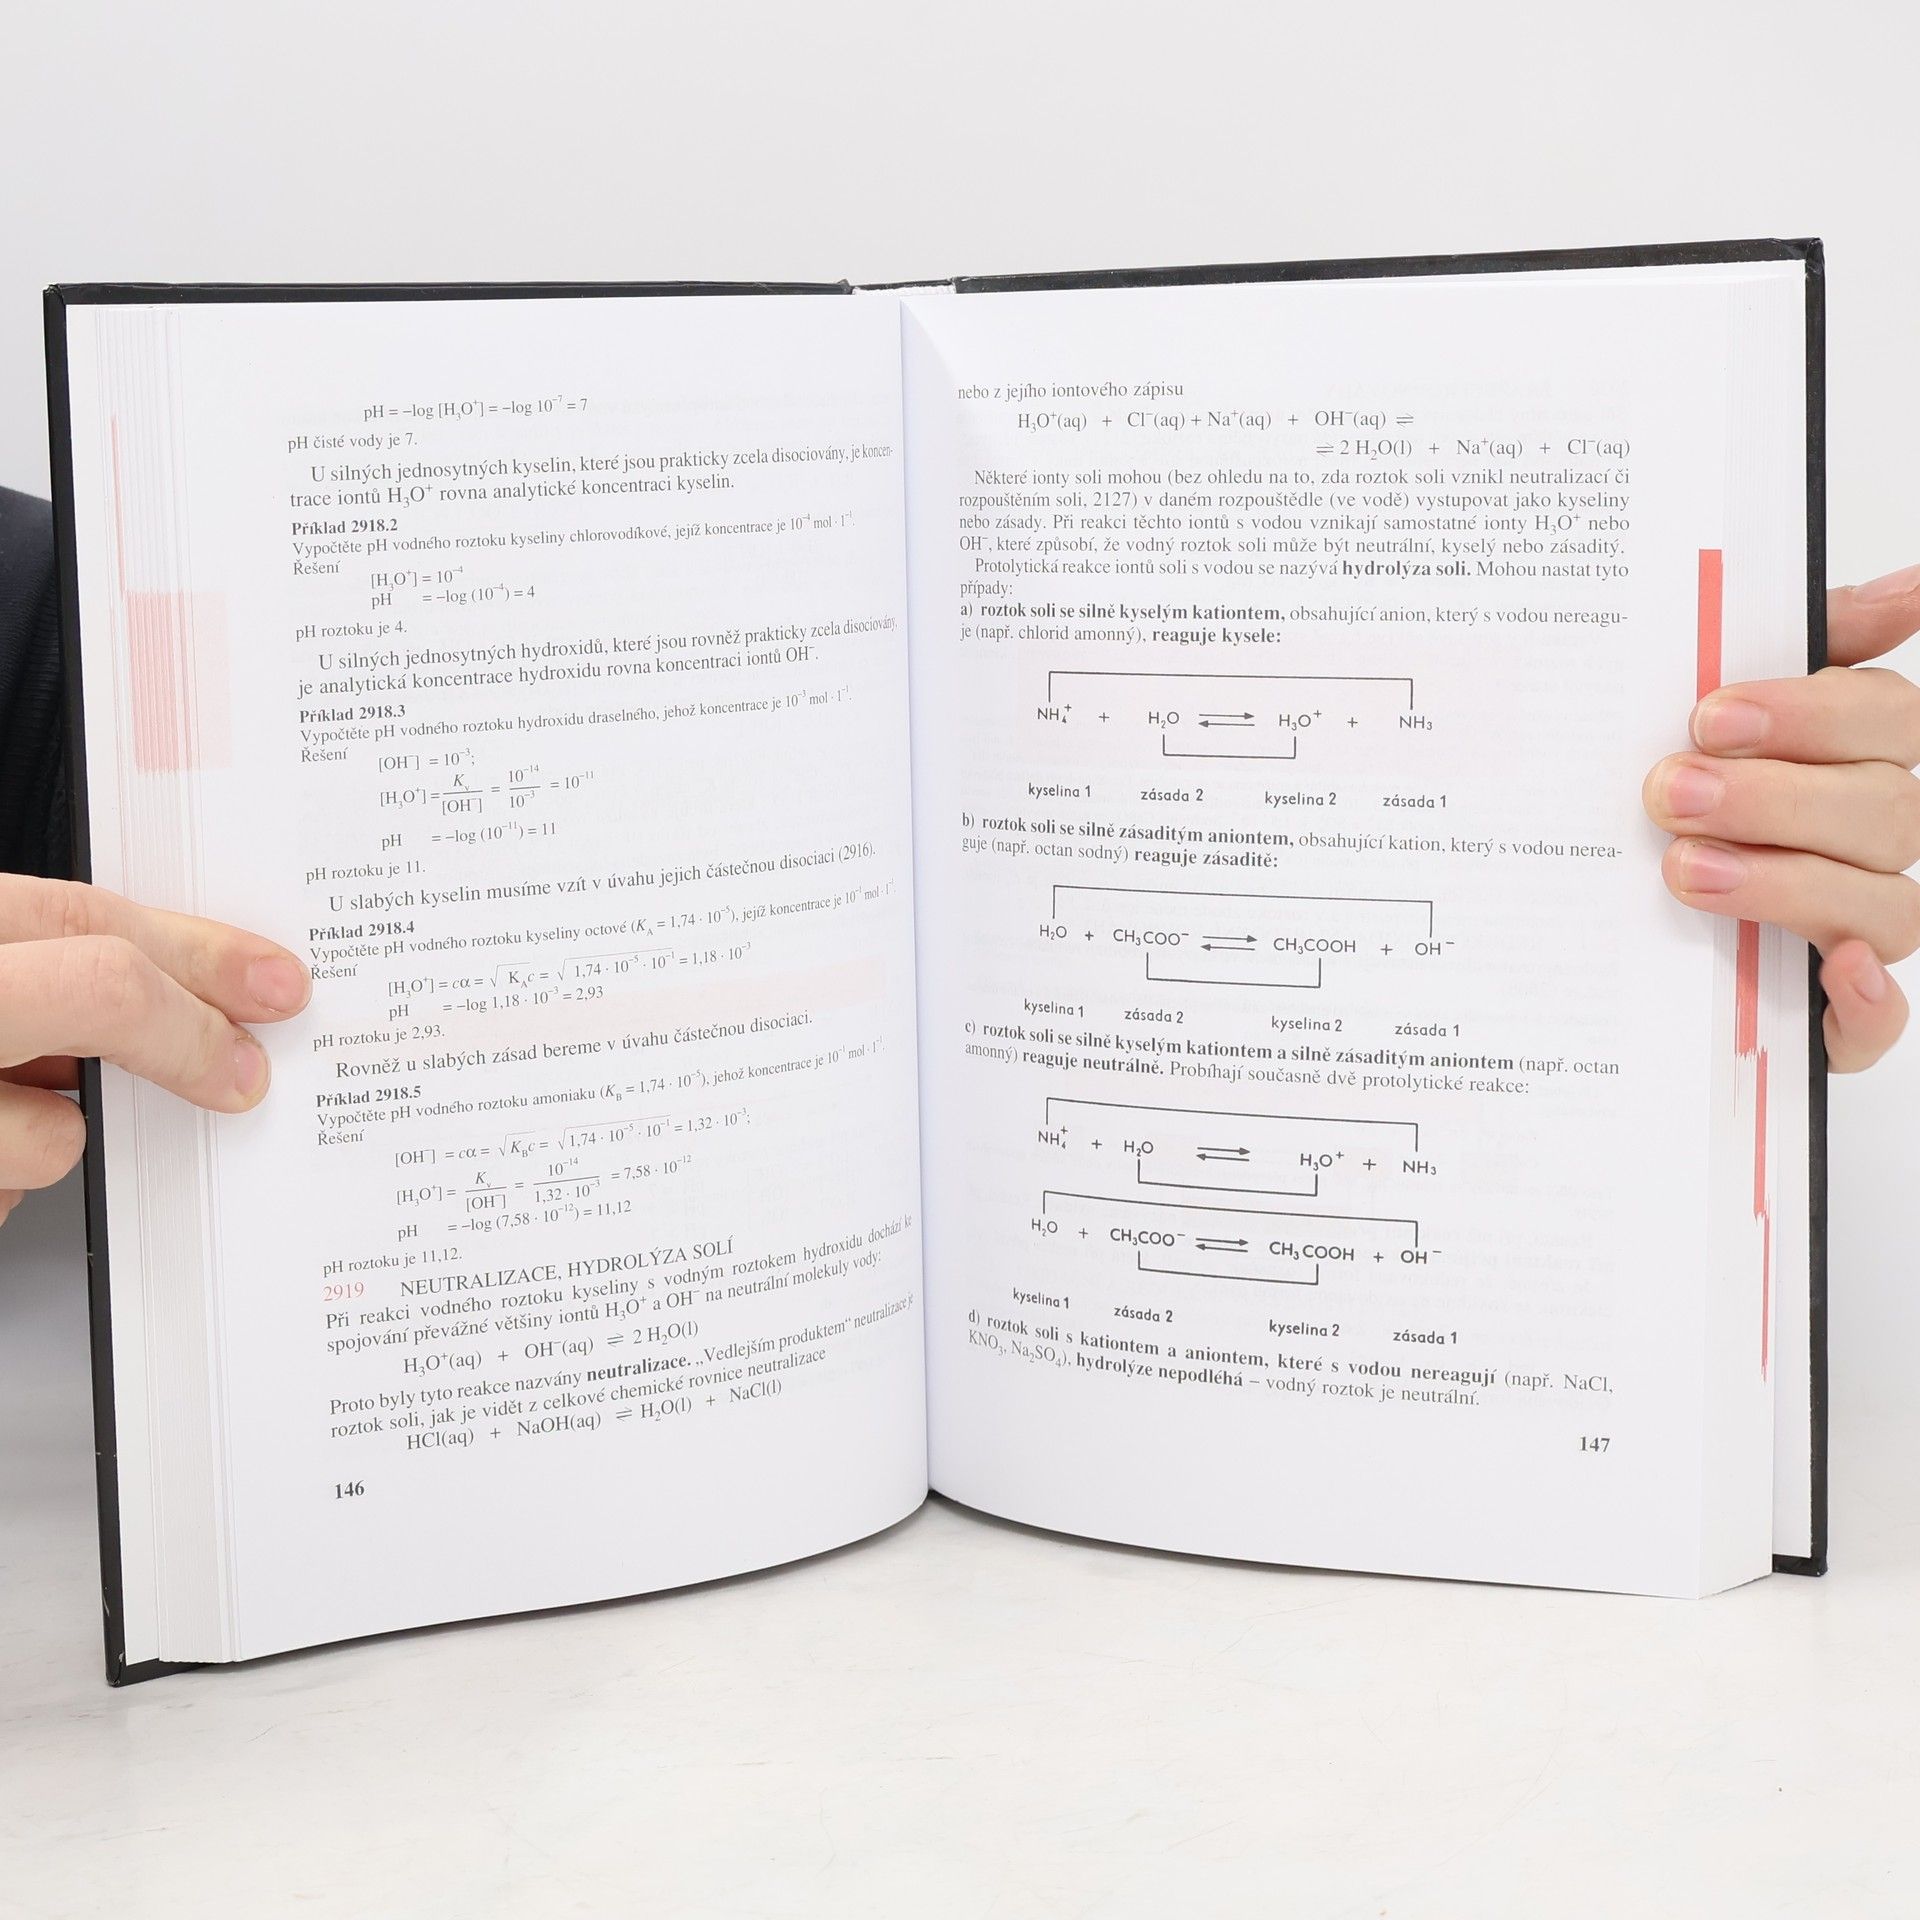 pH = –log [H₃O⁺] = –log 10⁻⁷ = 7
pH čisté vody je 7.
U silných jednosytných kyselin, které jsou prakticky zcela disociovány, je koncen-
trace iontů H₃O⁺ rovna analytické koncentraci kyselin.
Příklad 2918.2
Vypočtěte pH vodného roztoku kyseliny chlorovodíkové, jejíž koncentrace je 10⁻⁴ mol · l⁻¹.
Řešení
[H₃O⁺] = 10⁻⁴
pH = –log (10⁻⁴) = 4
pH roztoku je 4.
U silných jednosytných hydroxidů, které jsou rovněž prakticky zcela disociovány,
je analytická koncentrace hydroxidu rovna koncentraci iontů OH⁻.
Příklad 2918.3
Vypočtěte pH vodného roztoku hydroxidu draselného, jehož koncentrace je 10⁻³ mol · l⁻¹.
Řešení
[OH⁻] = 10⁻³;
[H₃O⁺] = Kᵥ / [OH⁻] = 10⁻¹⁴ / 10⁻³ = 10⁻¹¹
pH = –log (10⁻¹¹) = 11
pH roztoku je 11.
U slabých kyselin musíme vzít v úvahu jejich částečnou disociaci (2916).
Příklad 2918.4
Vypočtěte pH vodného roztoku kyseliny octové (K_A = 1,74 · 10⁻⁵), jejíž koncentrace je 10⁻¹ mol · l⁻¹.
Řešení
[H₃O⁺] = cα = √K_A c = √1,74 · 10⁻⁵ · 10⁻¹ = 1,18 · 10⁻³
pH = –log 1,18 · 10⁻³ = 2,93
pH roztoku je 2,93.
Rovněž u slabých zásad bereme v úvahu částečnou disociaci.
Příklad 2918.5
Vypočtěte pH vodného roztoku amoniaku (K_B = 1,74 · 10⁻⁵), jehož koncentrace je 10⁻¹ mol · l⁻¹.
Řešení
[OH⁻] = cα = √K_B c = √1,74 · 10⁻⁵ · 10⁻¹ = 1,32 · 10⁻³;
[H₃O⁺] = Kᵥ / [OH⁻] = 10⁻¹⁴ / 1,32 · 10⁻³ = 7,58 · 10⁻¹²
pH = –log (7,58 · 10⁻¹²) = 11,12
pH roztoku je 11,12.
2919 NEUTRALIZACE, HYDROLÝZA SOLÍ
Při reakci vodného roztoku kyseliny s vodným roztokem hydroxidu dochází ke
spojování převážné většiny iontů H₃O⁺ a OH⁻ na neutrální molekuly vody:
H₃O⁺(aq) + OH⁻(aq) ⇌ 2 H₂O(l)
Proto byly tyto reakce nazvány neutralizace. „Vedlejším produktem“ neutralizace je
roztok soli, jak je vidět z celkové chemické rovnice neutralizace
HCl(aq) + NaOH(aq) ⇌ H₂O(l) + NaCl(l)
146
nebo z jejího iontového zápisu
H₃O⁺(aq) + Cl⁻(aq) + Na⁺(aq) + OH⁻(aq) ⇌
⇌ 2 H₂O(l) + Na⁺(aq) + Cl⁻(aq)
Některé ionty soli mohou (bez ohledu na to, zda roztok soli vznikl neutralizací či
rozpouštěním soli, 2127) v daném rozpouštědle (ve vodě) vystupovat jako kyseliny
nebo zásady. Při reakci těchto iontů s vodou vznikají samostatné ionty H₃O⁺ nebo
OH⁻, které způsobí, že vodný roztok soli může být neutrální, kyselý nebo zásaditý.
Protolytická reakce iontů soli s vodou se nazývá hydrolýza soli. Mohou nastat tyto
případy:
a) roztok soli se silně kyselým kationtem, obsahující anion, který s vodou nereagu-
je (např. chlorid amonný), reaguje kysele:
NH₄⁺ + H₂O ⇌ H₃O⁺ + NH₃
kyselina 1 zásada 2 kyselina 2 zásada 1
b) roztok soli se silně zásaditým aniontem, obsahující kation, který s vodou nerea-
guje (např. octan sodný) reaguje zásaditě:
H₂O + CH₃COO⁻ ⇌ CH₃COOH + OH⁻
kyselina 1 zásada 2 kyselina 2 zásada 1
c) roztok soli se silně kyselým kationtem a silně zásaditým aniontem (např. octan
amonný) reaguje neutrálně. Probíhají současně dvě protolytické reakce:
NH₄⁺ + H₂O ⇌ H₃O⁺ + NH₃
H₂O + CH₃COO⁻ ⇌ CH₃COOH + OH⁻
kyselina 1 zásada 2 kyselina 2 zásada 1
d) roztok soli s kationtem a aniontem, které s vodou nereagují (např. NaCl,
KNO₃, Na₂SO₄), hydrolýze nepodléhá – vodný roztok je neutrální.
147